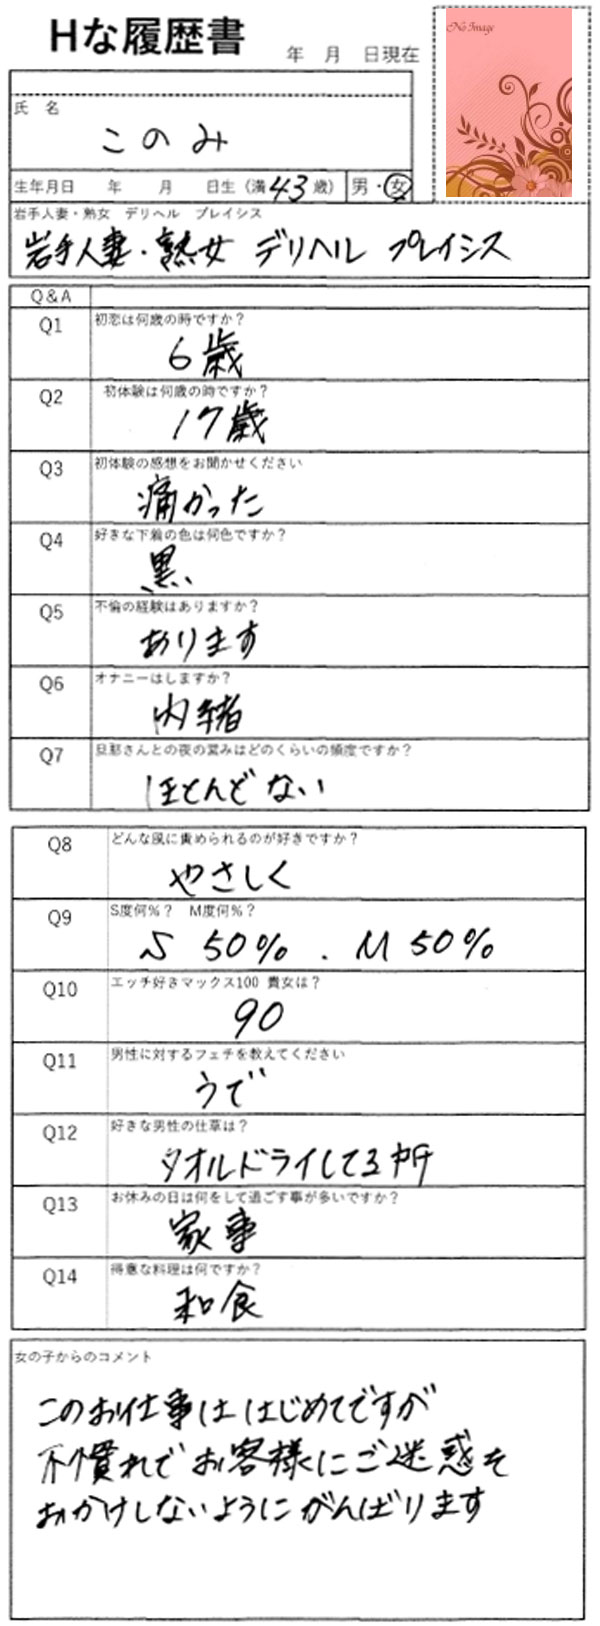 Hな履歴書
年 月 日現在
No Image
氏 名
このみ
生年月日 年 月 日生（満43歳） 男・女
岩手人妻・熟女 デリヘル プレイシス
岩手人妻・熟女 デリヘル プレイシス
Q&A
Q1 初恋は何歳の時ですか？
6歳
Q2 初体験は何歳の時ですか？
17歳
Q3 初体験の感想をお聞かせください
痛かった
Q4 好きな下着の色は何色ですか？
黒
Q5 不倫の経験はありますか？
あります
Q6 オナニーはしますか？
内緒
Q7 旦那さんとの夜の営みはどのくらいの頻度ですか？
ほとんどない
Q8 どんな風に責められるのが好きですか？
やさしく
Q9 S度何%？ M度何%？
S 50%. M 50%
Q10 エッチ好きマックス100 貴女は？
90
Q11 男性に対するフェチを教えてください
うで
Q12 好きな男性の仕草は？
タオルドライしてる所
Q13 お休みの日は何をして過ごす事が多いですか？
家事
Q14 得意な料理は何ですか？
和食
女の子からのコメント
このお仕事ははじめてですが
不慣れでお客様にご迷惑を
おかけしないようにがんばります